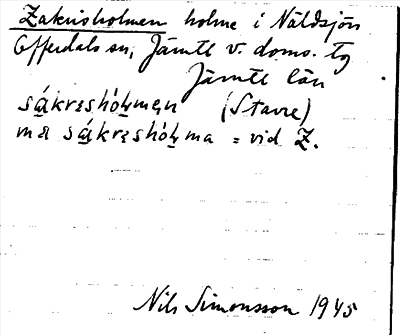 Zakrisholmen holme i Näldsjön
Offerdals sn, Jämtl v. doms. tg
Jämtl län
sákreshólmen (Stavre)
mä sákreshólma = vid Z.
Nils Simonsson 1945